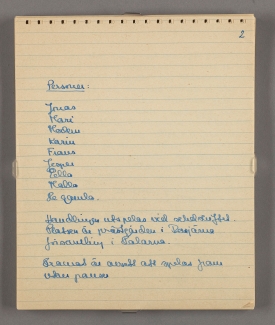 2
Personer:
Jonas
Mari
Karin
Frans
Jesper
Pella
Malla
De gamla.
Handlingen utspelas vid sekelskiftet.
Platsen är prästgården i
församling i Dalarna.
Dramat är avsett att spelas fram
utan paus